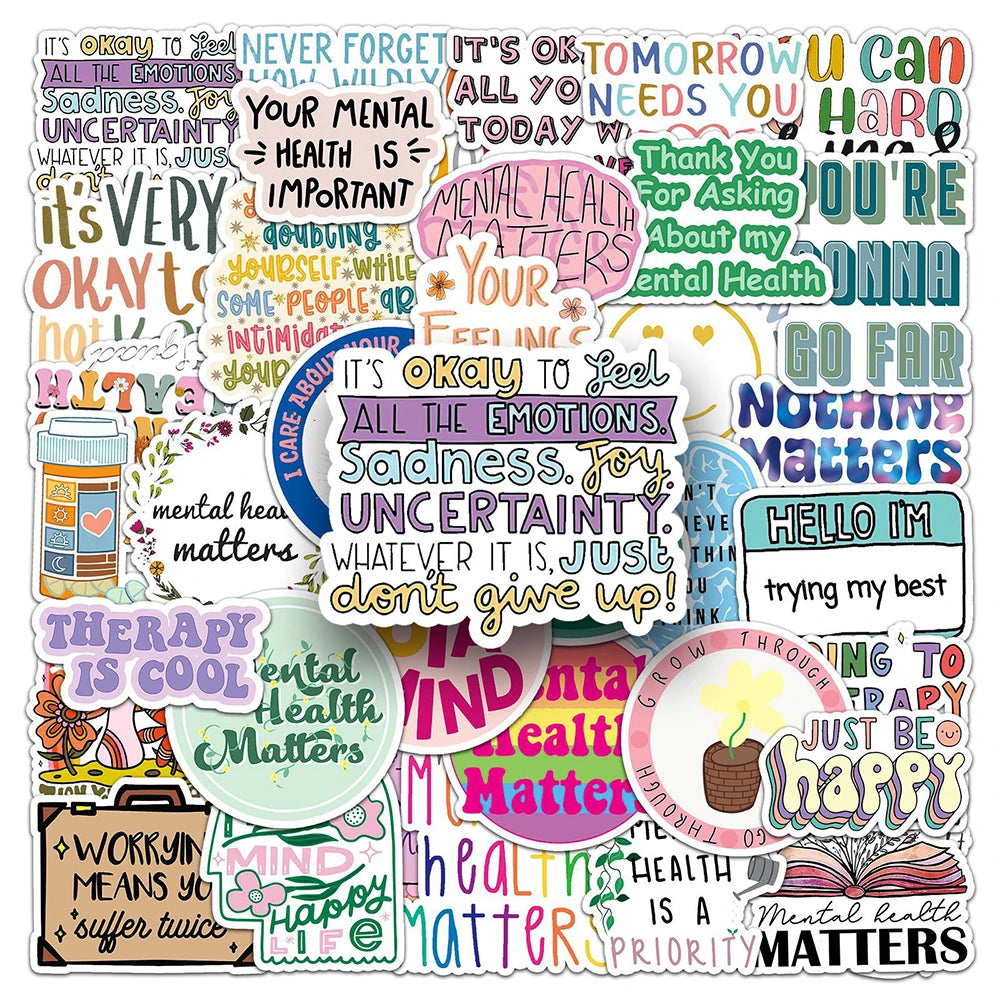 IT'S OKAY TO feel
ALL THE EMOTIONS.
Sadness. Joy
UNCERTAINTY
WHATEVER IT IS, JUS
don't
NEVER FORGET
HOW WILDLY
YOUR MENTAL
HEALTH IS
IMPORTANT
IT'S OK
ALL YO
TODAY W
TOMORROW
NEEDS YOU
U can
HARD
it's VERY
OKAY to
not
doubting
YOURSELF WHILE
SOME PEOPLE AR
intimidat
MENTAL HEALTH
MATTERS
Thank You
For Asking
About my
Mental Health
YOU'RE
GONNA
GO FAR
YOUR
FEELINGS
squad
HEALTH
I CARE ABOUT YOUR
IT'S OKAY TO feel
ALL THE EMOTIONS.
Sadness. Joy.
UNCERTAINTY.
WHATEVER IT IS, JUST
don't give up!
NOTHING
Matters
mental heal
matters
N'T
IEVE
THIN
OU
INK
HELLO I'M
trying my best
THERAPY
IS COOL
ental
Health
Matters
MIND
ental
Health
Matters
GROW THROUGH
GO THROUGH
ING TO
ERAPY
JUST BE
happy
WORRYIN
MEANS YO
suffer twice
MIND
Happy
LIFE
M
health
matters
ME
HEALTH
IS A
PRIORITY
Mental health
MATTERS